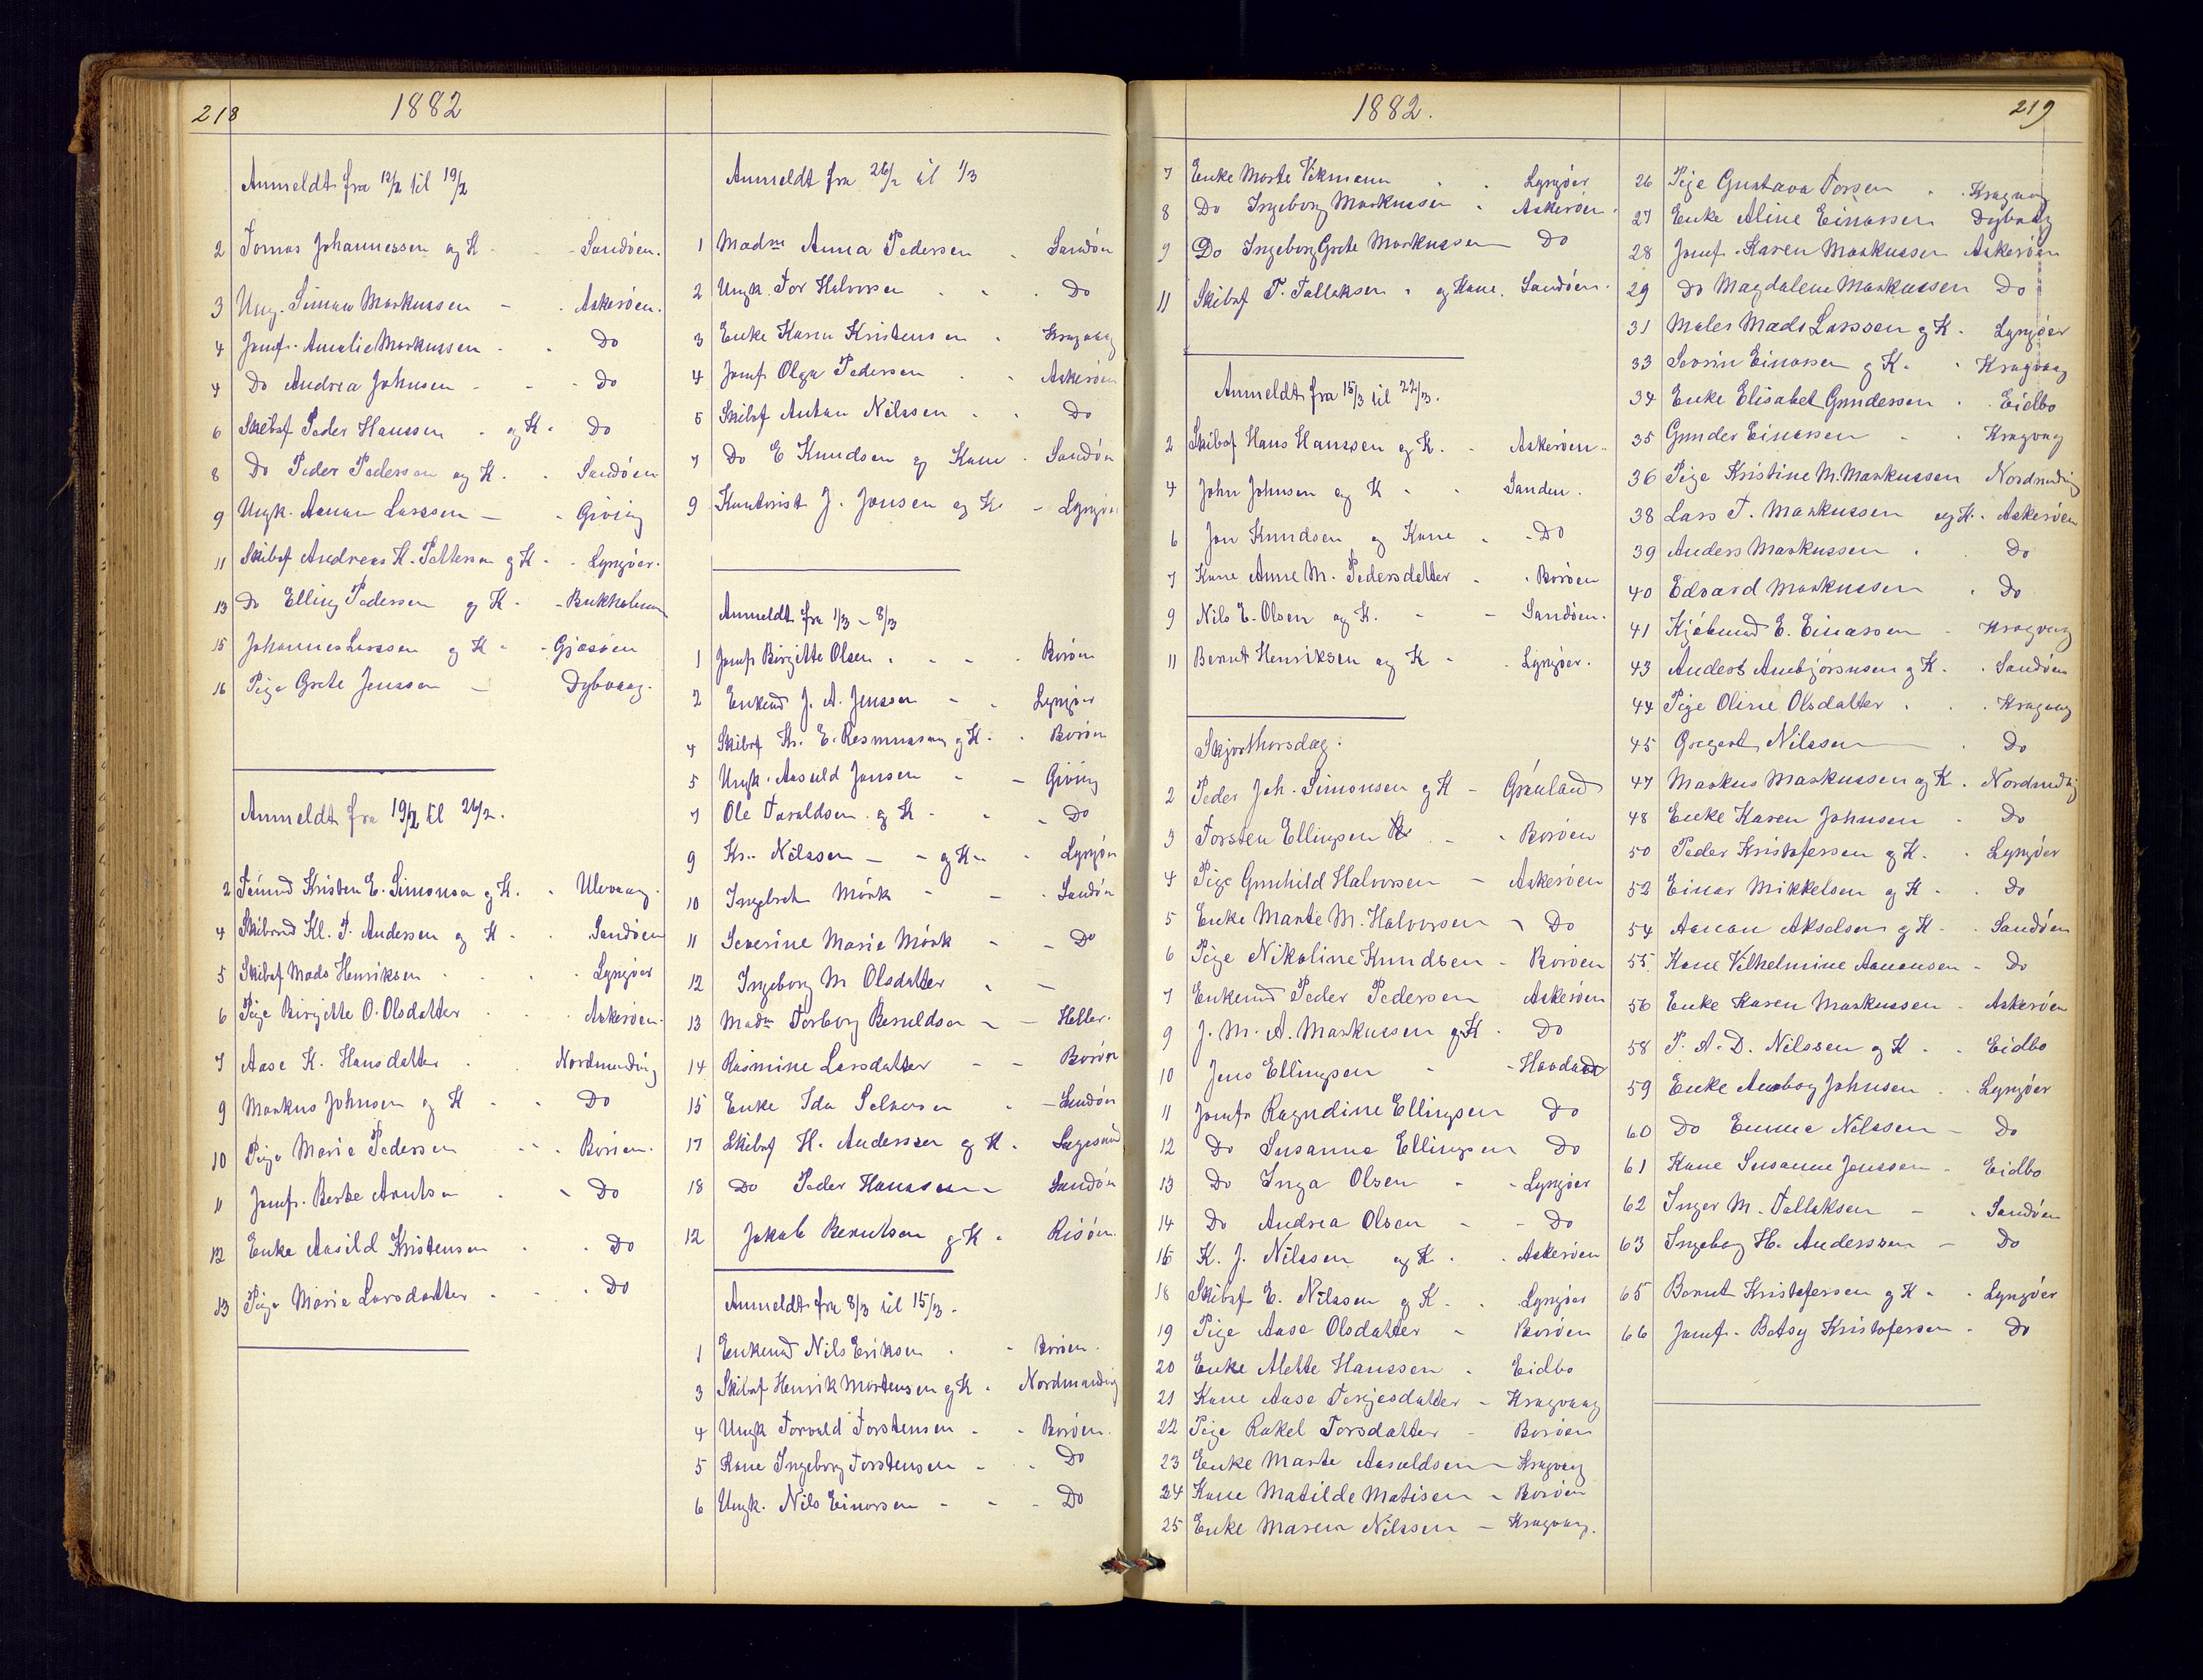 218
1882
Anmeldt fra 12/2 til 19/2
2 Tomas Johannessen og K - - Sandøen.
3 Ung. Simon Markussen - - Askerøen.
4 Jomf. Amalie Markussen - - Do
4 Do Andrea Johnsen - - - Do
6 Skibsf Peder Hanssen - og K - Do
8 Do Peder Pedersen og K. - Sandøen
9 Ungk. Aanon Larssen - - Giving
11 Skibsf Andreas K. Pettersen og K - - Lyngøer.
13 Do Elling Pedersen og K - - Bukholmen
15 Johannes Larssen og K - - Gjæsøen
16 Pige Grete Jenssen - Dybvaag.
Anmeldt fra 19/2 til 26/2.
2 Kristen E. Simonsen og K. - Ulevaag.
4 Kl. P. Andersen og K - . Sandøen
5 Skibsf Mads Henriksen . . . Lyngøer
6 Pige Birgitte O. Olsdatter . . Askerøen.
7 Aase K. Hansdatter . Nordmunding
9 Markus Johnsen og K - - Do
10 Pige Marie Pedersen - - Borøen.
11 Jomf. Berte Arntsen . - Do
12 Enke Aasild Kristensen . . Do
13 Pige Marie Larsdatter . . . Do
Anmeldt fra 26/2 til 1/3
1 Madm Anna Pedersen . Sandøn
2 Ungk. Tor Halvorsen . . . Do
3 Enke Karen Kristensen . Kragvaag
4 Jomf Olga Pedersen . . Askerøen
5 Skibsf Anton Nilssen . . Do
7 Do E Knudsen og Kone . Sandøn
9 Kontorist J. Jonsen og K - Lyngøer
Anmeldt fra 1/3 - 8/3
1 Jomf Birgitte Olsen . . . . Borøn
2 Enkemd J. A. Jenssen - . Lyngøer
4 Skibsf Kr. E. Rasmussen og K. . Borøn
5 Ungk. Aasuld Jonsen - - Giving
7 Ole Taraldsen og K - - - Do
9 Kr. Nilssen - - og K - . Lyngøn
10 Ingebret Mørk - - . Sandøn
11 Severine Marie Mørk - - Do
12 Ingeborg M Olsdatter . -
13 Madm Torborg Beruldsen - - Heller.
14 Rasmine Larsdatter - - Borøn
15 Enke Ida - Sandøn
17 Skibsf H. Anderssen og K.
18 Do Peder Hanssen - Sandøn
12 Jakob Berntsen og K - Risøn.
Anmeldt fra 8/3 til 15/3 .
1 Enkemd Nils Eriksen . - Borøen.
3 Skibsf Henrik Mortensen og K . Nordmunding
4 Ungk Torvald Torstensen . . Borøen.
5 Kone Ingeborg Torstensen - . Do
6 Ungk. Nils Einarsen - - - Do
1882.
219
7 Enke Marte Vikmann . . Lyngøer
8 Do Ingeborg Markussen . Askerøen.
9 Do Ingeborg Grete Markussen - Do
11 Skibsf T. Tallaksen . og Kone. Sandøen.
Anmeldt fra 15/3 til 22/3.
2 Skibsf Hans Hanssen og K. . Askerøen.
4 John Johnsen og K - - Sanden.
6 Jon Knudsen og Kone . - Do
7 Kone Anne M. Pedersdatter - . Borøen
9 Nils E. Olsen og K. - - Sandøen.
11 Bernt Henriksen og K - . Lyngøer.
Skjærthorsdag.
2 Peder Joh. Simonsen og K - Grønland
3 Torsten Ellingsen . - . Borøen
4 Pige Gunhild Halvorsen - Askerøen
5 Enke Marte M. Halvorsen - Do
6 Pige Nikoline Knudsen - Borøen
7 Enkemd Peder Pedersen Askerøen
9 J. M. A. Markussen og K . Do
10 Jens Ellingsen -
11 Jomfr Ragndine Ellingsen Do
12 Do Susanne Ellingsen Do
13 Do Inga Olsen - - Lyngøer
14 Do Andrea Olsen - - Do
16 K. J. Nilssen og K . . Askerøen
18 Skibsf E. Nilssen og K . . Lyngøer
19 Pige Aase Olsdatter - Borøen
20 Enke Mette Hanssen . Eidbo
21 Kone Aase Terjesdatter - Kragvaag
22 Pige Rakel Torsdatter - Borøen
23 Enke Marte Aasuldsen - Kragvaag
24 Kone Matilde Matisen - Borøen
25 Enke Maren Nilssen - Kragvaag.
26 Pige Gustava Torsen . . Kragvaag
27 Enke Aline Einarsen Dybvaag
28 Jomf. Karen Markussen Askerøen
29 Do Magdalene Markussen Do
31 Maler Mads Larssen og K . Lyngøer
33 Severin Einarsen og K . . Kragvaag
34 Enke Elisabet Gundersen . . Eidbo
35 Gunder Einarsen - . Kragvaag
36 Pige Kristine M. Markussen Nordmunding
38 Lars T. Markussen og K. . Askerøen
39 Anders Markussen . . Do
40 Edvard Markussen . Do
41 Kjøbmd E. Einarsen - Kragvaag
43 Anders Anebjørnsen og K . . Sandøen
44 Pige Oline Olsdatter . . . Kragvaag
45 Gregert Nilssen - . Do
47 Markus Markussen og K . Nordmunding
48 Enke Karen Johnsen . Do
50 Peder Kristofersen og K . . Lyngøer
52 Einar Mikkelsen og K - . Do
54 Aanon Akselsen og K . . Sandøen
55 Kone Vilhelmine Aanonsen - Do
56 Enke Karen Markussen - Askerøen
58 P. A. D. Nilssen og K . . Eidbo
59 Enke Johnsen . . Lyngøer
60 Do Emma Nilssen - Do
61 Kone Susanne Jenssen - Eidbo
62 Inger M. Tallaksen - . Sandøen
63 Ingeborg H. Anderssen - Do
65 Bernt Kristofersen og K - . Lyngøer
66 Jomf. Betsy Kristofersen . Do